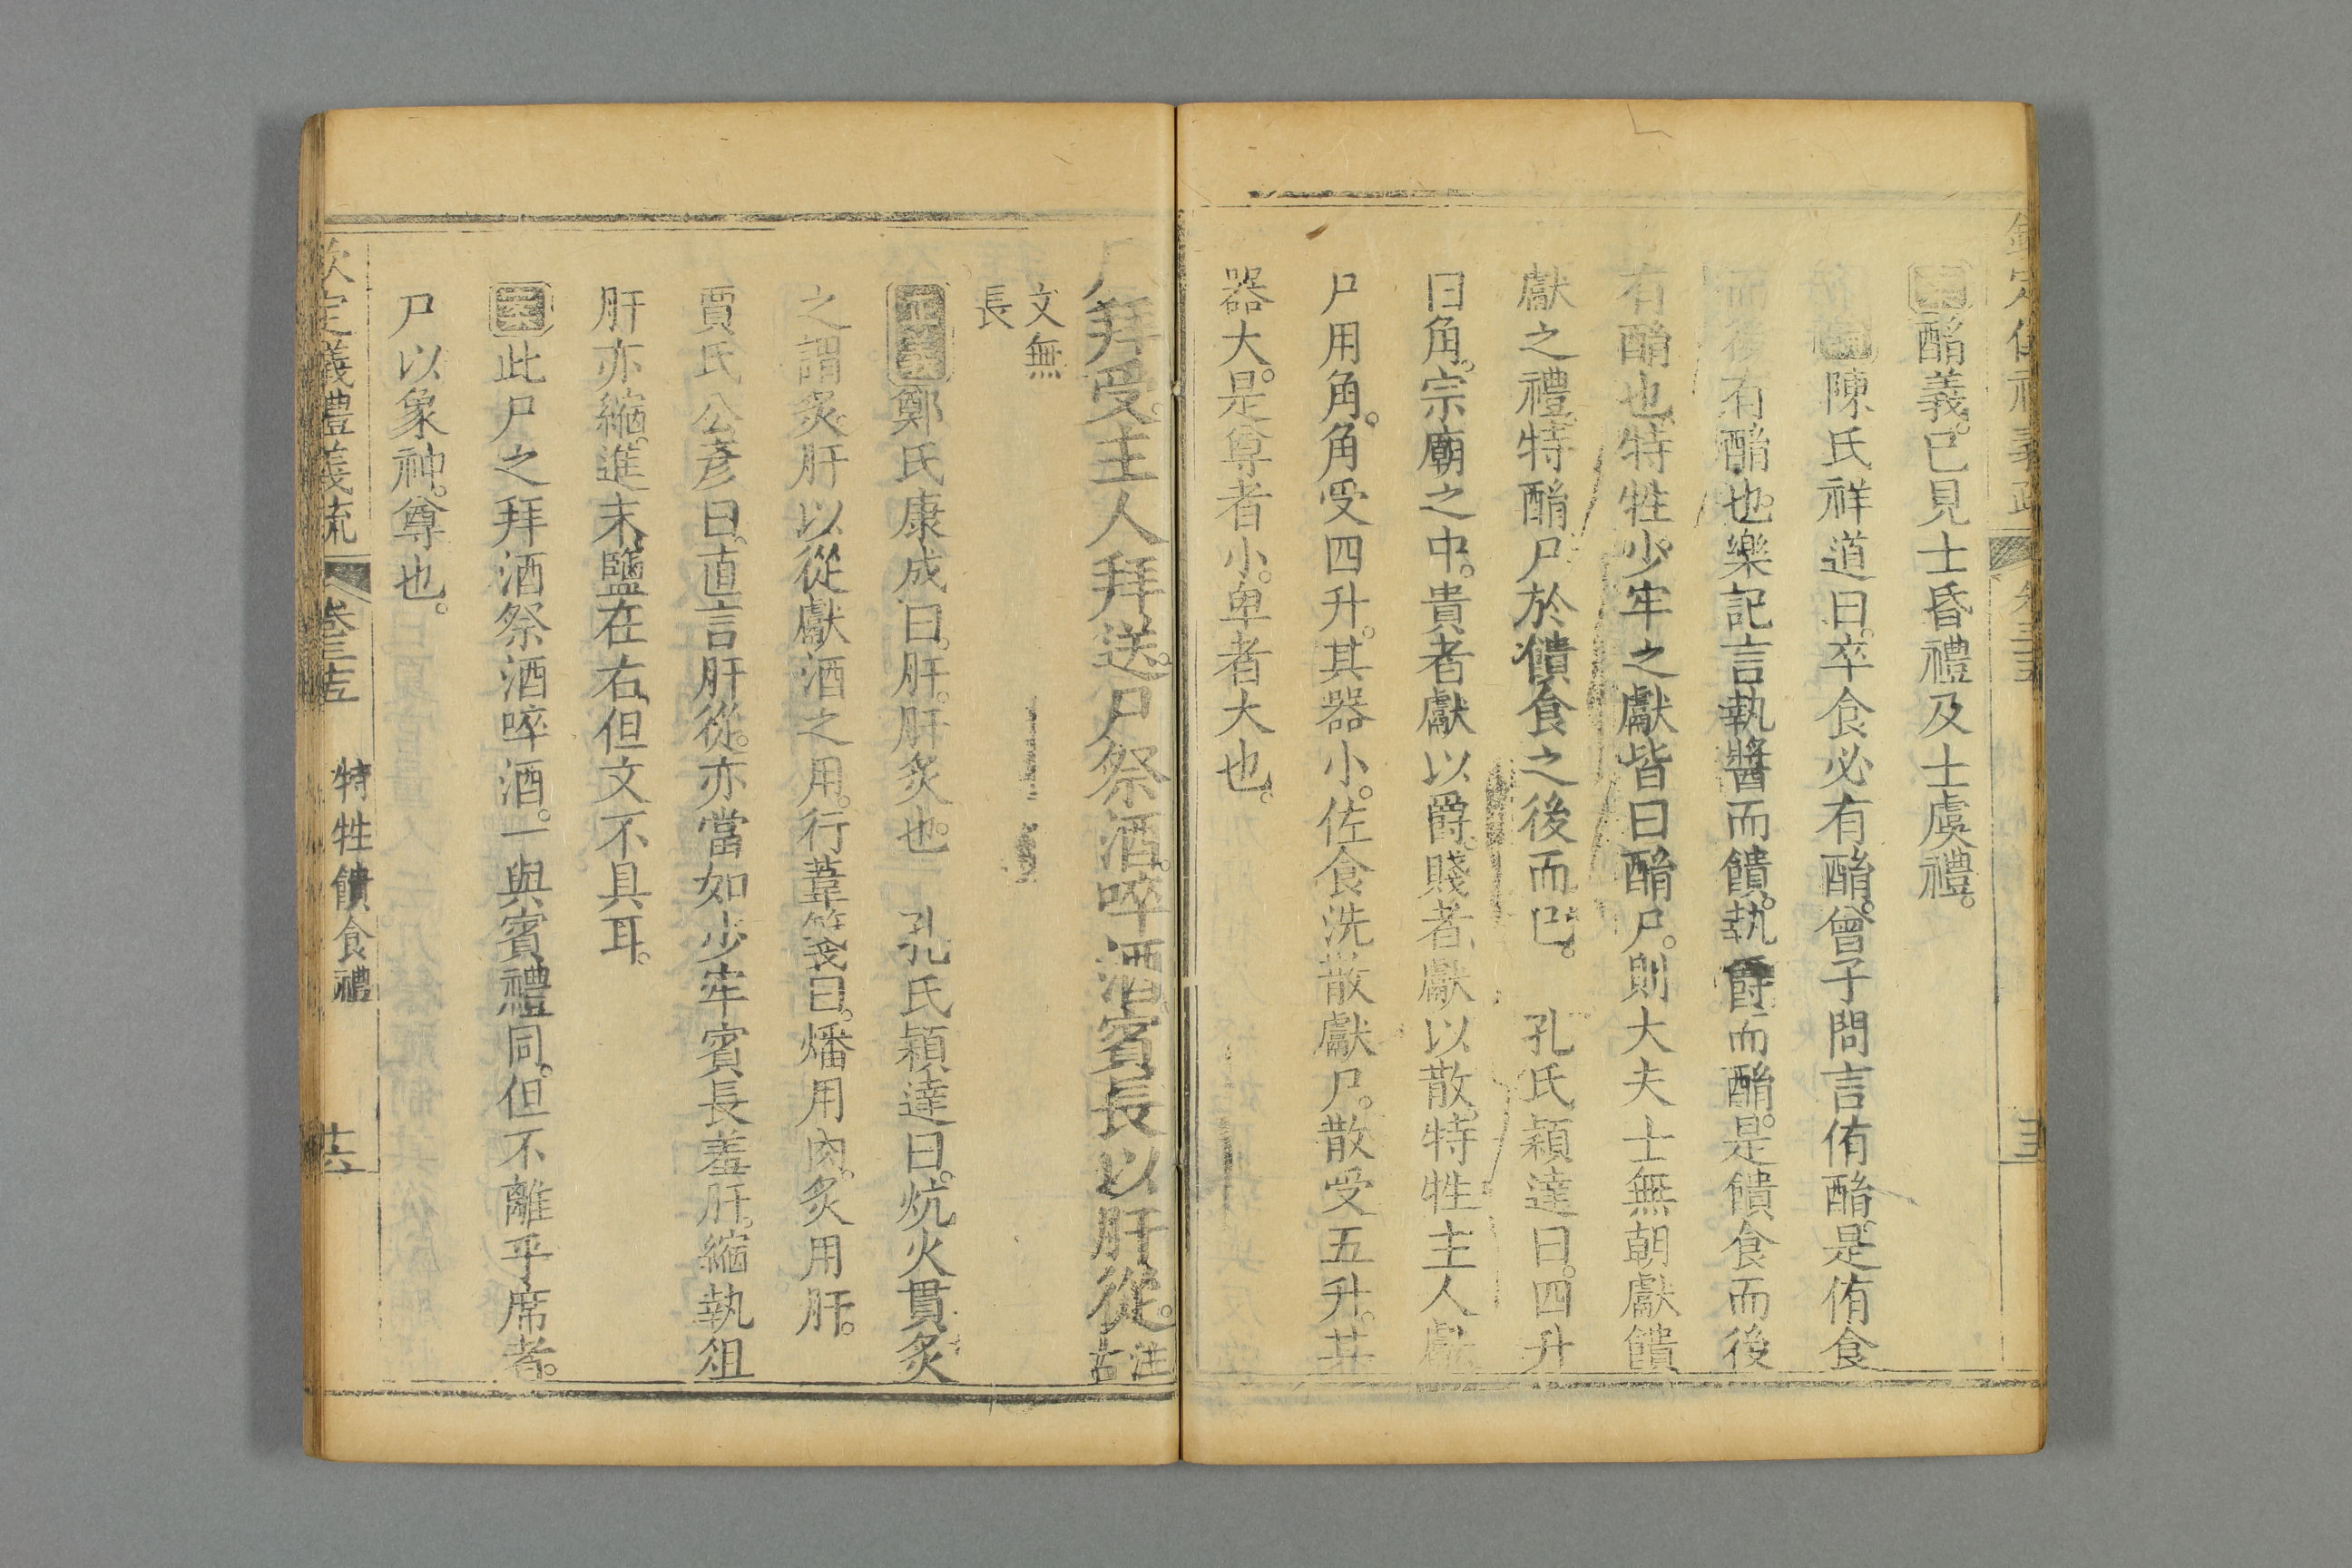 酳義。已見士昏禮及士虞禮。
陳氏祥道曰。卒食必有酳。曾子問言侑酳。是侑食
而後有酳也。樂記言執醬而饋。執爵而酳。是饋食而後
有酳也。特牲少牢之獻皆曰酳尸。則大夫士無朝獻饋
獻之禮。特酳尸於饋食之後而已。 孔氏穎達曰。四升
曰角。宗廟之中。貴者獻以爵。賤者獻以散。特牲主人獻
尸用角。角受四升。其器小。佐食洗散獻尸。散受五升。其
器大。是尊者小。卑者大也。
尸拜受。主人拜送。尸祭酒。啐酒。賓長以肝從。注古
文無長
正義鄭氏康成曰。肝。肝炙也。 孔氏穎達曰。炕火貫炙
之謂炙。肝以從獻酒之用。行葦箋曰。燔用肉。炙用肝。
賈氏公彥曰。直言肝從。亦當如少牢賓長羞肝。縮執俎
肝亦縮。進末。鹽在右。但文不具耳。
此尸之拜酒祭酒啐酒。一與賓禮同。但不離乎席者。
尸以象神。尊也。
欽定儀禮義疏 卷三十五 特牲饋食禮 十六